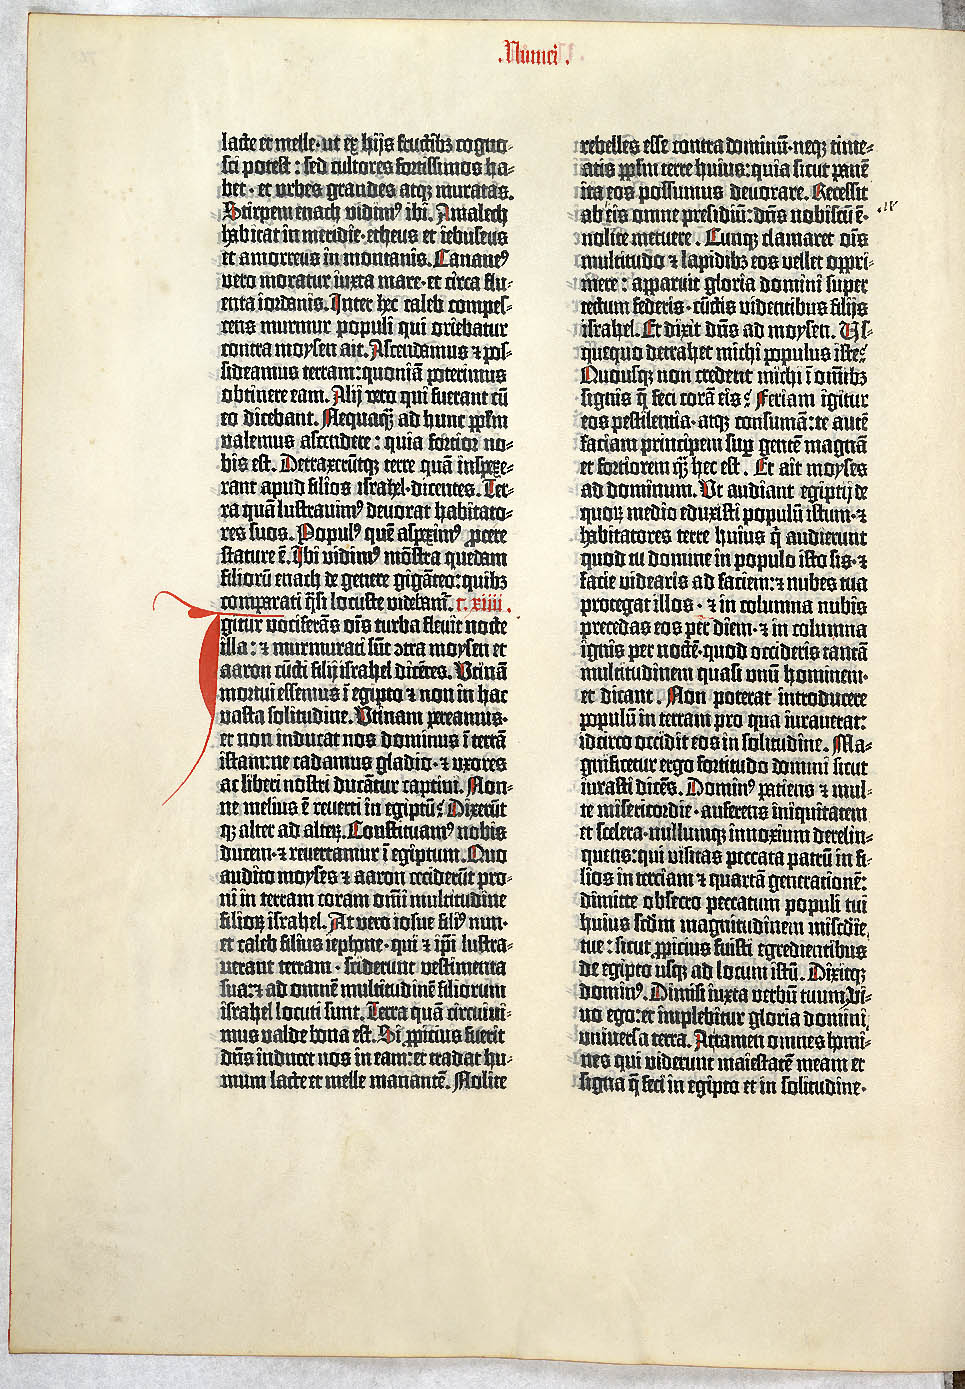 .Numeri.
lacte et melle· ut ex hijs fructibꝫ cogno-
sci potest : sed cultores fortissimos ha-
bet· et urbes grandes atqꝫ muratas.
Stirpem enach vidimꝰ ibi. Amalech
habitat in meridie· etheus et iebuseus
et amorreus in montanis. Cananeꝰ
vero moratur iuxta mare· et circa flu-
enta iordanis. Inter hec caleb compes-
cens murmur populi qui oriebatur
contra moysen ait. Ascendamus ⁊ pos-
sideamus terram: quoniā poterimus
obtinere eam. Alij vero qui fuerant cū
eo dicebant. Nequaqꝫ ad hunc ppl̄m
valemus ascendere : quia fortior no-
bis est. Detraxerūtqꝫ terre quā inspexe-
rant apud filios israhel· dicentes. Ter-
ra quā lustravimꝰ devorat habitato-
res suos. Populꝰ quē aspeximꝰ ꝓcere
stature ē. Ibi vidimꝰ mōstra quedam
filiorū enach de genere gigāteo: quibꝫ
comparati q̄si locuste videbam̄. c. xiiii.
Igitur vociferās oīs turba flevit nocte
illa: ⁊ murmurati sūt ↄtra moysen et
aaron cūcti filij israhel dicētes. Utinā
mortui essemus ī egipto ⁊ non in hac
vasta solitudine. Utinam pereamus·
et non inducat nos dominus ī terrā
istam: ne cadamus gladio· ⁊ uxores
ac liberi nostri ducātur captivi. Non-
ne melius ē reverti in egiptū? Dixerūt
qꝫ alter ad alterꝝ. Constituamꝰ nobis
ducem· ⁊ revertamur ī egiptum. Quo
audito moyses ⁊ aaron ceciderūt pro-
ni in terram coram omī multitudine
filioꝝ israhel. At vero iosue filiꝰ nun·
et caleb filius iephone· qui ⁊ ip̄i lustra-
verant terram· sciderunt vestimenta
sua: ⁊ ad omnē multitudinē filiorum
israhel locuti sunt. Terra quā circuivi-
mus valde bona est. Si ꝓpicius fuerit
dn̄s inducet nos in eam: et tradat hu-
mum lacte et melle manantē. Nolite
rebelles esse contra dominū· neqꝫ time-
atis ppl̄m terre huius: quia sicut panē
ita eos possumus devorare. Recessit
ab eis omne presidiū: dn̄s nobiscū ē·
nolite metuere. Cunqꝫ clamaret oīs
multitudo ⁊ lapidibꝫ eos vellet oppri-
mere : apparuit gloria domini super
tectum federis· cūctis videntibus filijs
israhel. Et dixit dn̄s ad moysen. Us-
quequo detrahet michi populus iste?
Quousqꝫ non credent michi ī om̄ibꝫ
signis q̄ feci corā eis? Feriam igitur
eos pestilentia· atqꝫ consumā: te autē
faciam principem suꝑ gentē magnā
et fortiorem qꝫ hec est. Et ait moyses
ad dominum. Ut audiant egiptij de
quoꝝ medio eduxisti populū istum· ⁊
habitatores terre huius q̇ audierunt
quod tu domine in populo isto sis· ⁊
facie videaris ad faciem: ⁊ nubes tua
protegat illos· ⁊ in columna nubis
precedas eos per diem· ⁊ in columna
ignis per noctē· quod occideris tantā
multitudinem quasi unū hominem·
et dicant. Non poterat introducere
populū in terram pro qua iuraverat:
idcirco occidit eos in solitudine. Ma-
gnificetur ergo fortitudo domini sicut
iurasti dicēs. Dominꝰ patiens ⁊ mul-
te misericordie· auferens iniquitatem
et scelera· nullumqꝫ innoxium derelin-
quens: qui visitas peccata patrū in fi-
lios in terciam ⁊ quartā generationē:
dimitte obsecro peccatum populi tui
huius scd̄m magnitudinem mis̄cdie
tue : sicut ꝓpicius fuisti egredientibus
de egipto usqꝫ ad locum istū. Dixitqꝫ
dominꝰ. Dimisi iuxta verbū tuum. Vi-
vo ego: et implebitur gloria domini
universa terra. Attamen omnes homi-
nes qui viderunt maiestatē meam et
signa q̄ feci in egipto et in solitudine·